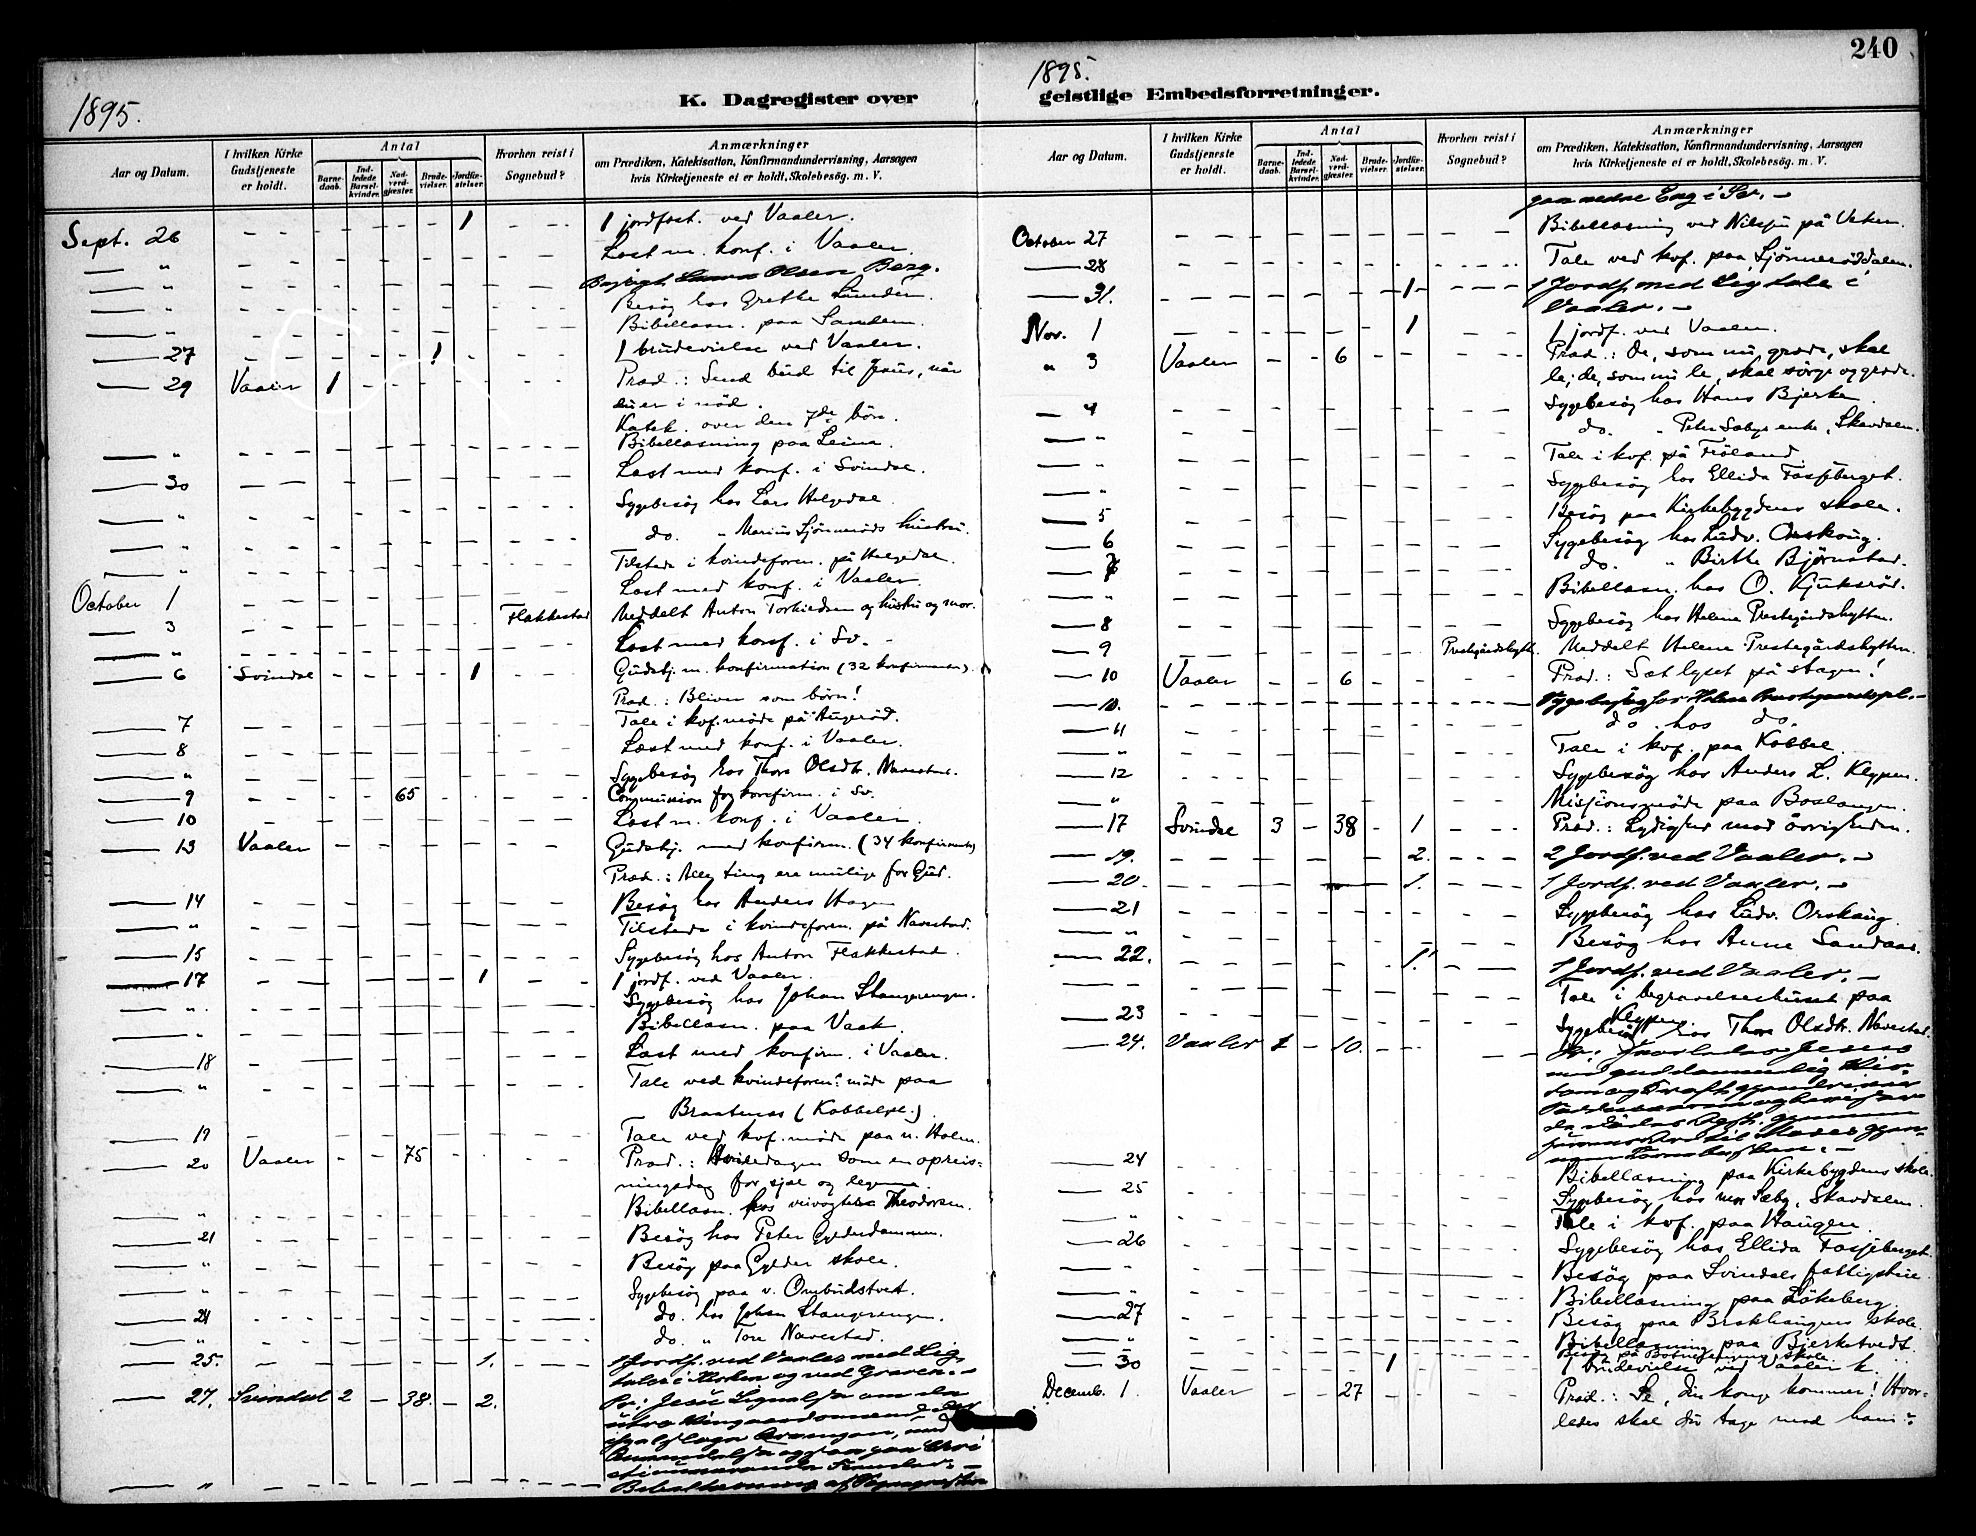 240
1895.
1895.
K. Dagregister over
geistlige Embedsforretninger.
Aar og Datum.
I hvilken Kirke Gudstjeneste er holdt.
Antal
Barne-daab.
Ind-ledede Barsel-kvinder.
Nad-verd-gjæster.
Brude-vielser.
Jordfæ-stelser.
Hvorhen reist i Sognebud?
Anmærkninger
om Prædiken, Katekisation, Konfirmandundervisning, Aarsagen
hvis Kirketjeneste ei er holdt, Skolebesög. m. V.
Sept. 26 1 1 jordfæst. ved Vaaler.
" Læst m. konf. i Vaaler.
" Olsen Berg.
" Besög hos Grethe Lunden.
" Bibellæsn. paa Sanden.
27 1 1 brudevielse ved Vaaler.
29 Vaaler 1 Præd.: Send bud til Jesus, når
du er i nöd.
Katek. over den 7de bön.
" Bibellæsning paa Leine.
30 Læst med konf. i Svindal.
" Sygebesög hos Lars Helgedal.
" do. " Marius Sjönneröds hustru.
" Tilstede i kvindeforen. på Helgedal.
October 1 Læst med konf. i Vaaler.
3 Flakkestad Meddelt Anton Torkildsen og hustru og mor.
" Læst med konf. i Sv.
6 Svindal 1 Gudstj. m. konfirmation (32 konfirmanter).
Præd.: Bliver som børn!
7 Tale i kvf. möde på Augeröd.
8 Læst med konf. i Vaaler.
" Sygebesög hos Thore Olsdtr. Navestad.
9 65 Communion for konfirm. i Sv.
10 Læst m. konf. i Vaaler.
13 Vaaler Gudstj. med konfirm. (34 konfirmanter)
Præd.: Alle ting ere mulige for Gud.
14 Besög hos Anders Hagen
" Tilstede i kvindeforen. på Navestad.
15 Sygebesög hos Anton Flakkestad.
17 1 1 jordf. ved Vaaler.
" Sygebesög hos Johan Stangerengen.
" Bibellæsn. paa Vaak.
18 Læst med konfirm. i Vaaler.
" Tale ved kvindeforen: möde paa
Braatenes (Kabbelpl.)
19 Tale ved kvf. möde paa n. Holm.
20 Vaaler 75 Præd.: Hviledagen som en opreis-
ningsdag for sjæl og legeme.
" Bibellæsn. hos veivogter Theodorsen.
21 Besög hos Peter Gylderdammen.
" Besög paa Gylder skole.
" Sygebesög paa v. Ombudstvet.
24 do. hos Johan Stangerengen.
" do. " Tore Navestad.
25. 1. 1 Jordf. ved Vaaler med Lig-
tale i Kirken og ved Graven. -
27. Svindal 2 38. 2. Pr: Jesu Lignelse om den
"
Aar og Datum.
I hvilken Kirke Gudstjeneste er holdt.
Antal
Barne-daab.
Ind-ledede Barsel-kvinder.
Nad-verd-gjæster.
Brude-vielser.
Jordfæ-stelser.
Hvorhen reist i Sognebud?
Anmærkninger
om Prædiken, Katekisation, Konfirmandundervisning, Aarsagen
hvis Kirketjeneste ei er holdt, Skolebesög. m. V.
Eng i Sv. -
October 27 Bibellæsning ved Nilsen på
28 Tale ved kvf. paa Sjönneröddalen.
31. 1. 1 Jordf. med Ligtale i
Vaaler. -
Nov. 1 1 1 jordf. ved Vaaler.
" 3 Vaaler 6 Præd.: De, som nu græde, skal
le; de, som nu le, skal sörge og græde.
4 Sygebesög hos Hans Bjerke.
" do. " Peter Sæbys enke, Skovdalen.
" Tale i kvf. på Fröland.
" Sygebesög hos Ellida Fossjeberget.
5 Besög paa Kirkebygdens skole.
6 Sygebesög hos Ludv. Orskoug.
7 do. " Birthe Bjørnstad.
" Bibellæsn. hos O. Kjukeröd.
8 Sygebesög hos Helene Prestegårdshytten.
9 Prestegårdshytt. Meddelt Helene Prestegårdshytten.
10 Vaaler 6 Præd.: Sæt lyset på stagen!
10. Sygebesög for Helene
11 do. hos do.
" Tale i kvf. paa Kabbel.
12 Sygebesög hos Anders L. Kleppen.
" Missionsmöde paa Boslangen.
17 Svindal 3 38 1 Præd.: Lydighed mod övrigheden.
19. 2. 2 Jordf. ved Vaaler. -
20. 1. 1 Jordf. ved Vaaler. -
21 Sygebesög hos Ludv. Orskaug.
" Besög hos Anne Sandaas.
22. 1. 1 Jordf. ved Vaaler. -
Tale i begravelseshuset paa
Kleppen
23 Sygebesög hos Thore Olsdtr. Navestad.
24. Vaaler 1 10.
24 Bibellæsning paa Kirkebygdens skole.
25 Sygebesög hos Sæby, Skovdalen.
" Tale i kvf. paa Haugen.
26 Sygebesög hos Ellida Fossjeberget.
" Besög paa Svindals fattighus.
" Bibellæsning paa Lökeberg.
27 Besög paa skole.
" Bibellæsning paa Bjerketvedt.
" Besög på skole.
30 1 1 brudevielse ved Vaaler k.
Decemb. 1. Vaaler 27 Præd.: Se, din konge kommer! Hvor-
ledes skal du tage mod ham?